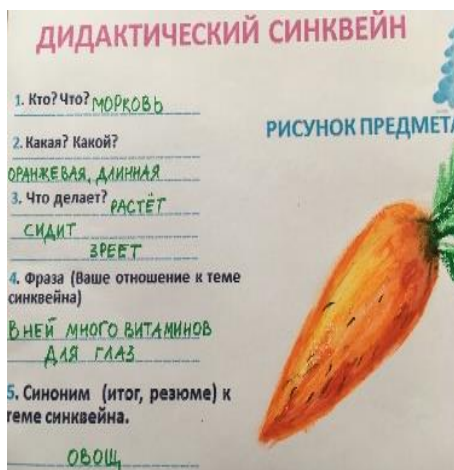 ДИДАКТИЧЕСКИЙ СИНКВЕЙН
1. Кто? Что? МОРКОВЬ
2. Какая? Какой?
ОРАНЖЕВАЯ, ДЛИННАЯ
3. Что делает? РАСТЁТ
СИДИТ
ЗРЕЕТ
4. Фраза (Ваше отношение к теме
синквейна)
В НЕЙ МНОГО ВИТАМИНОВ
ДЛЯ ГЛАЗ
5. Синоним (итог, резюме) к
теме синквейна.
ОВОЩ
РИСУНОК ПРЕДМЕТА